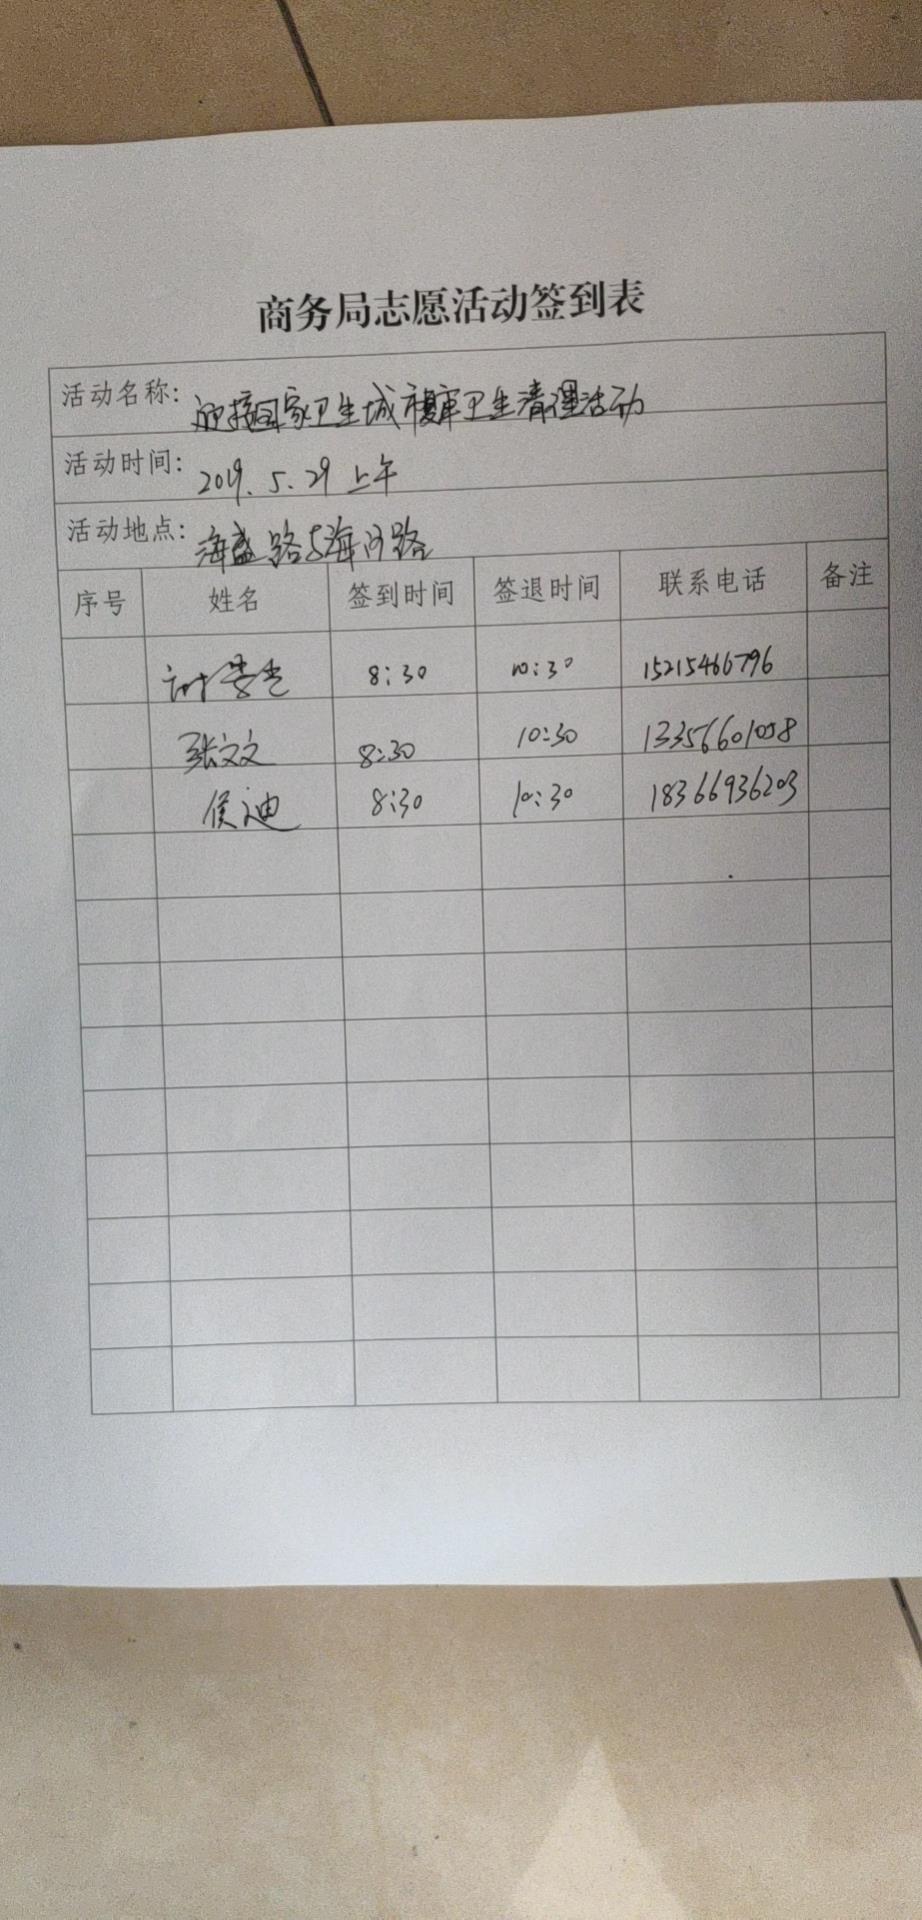 商务局志愿活动签到表
活动名称: 迎接国家卫生城市复审卫生清理活动
活动时间: 2019.5.29 上午
活动地点: 海盛路与海河路
序号 姓名 签到时间 签退时间 联系电话 备注
8:30 10:30 15215466796
张文文 8:30 10:30 13356601058
侯迪 8:30 10:30 18366936203